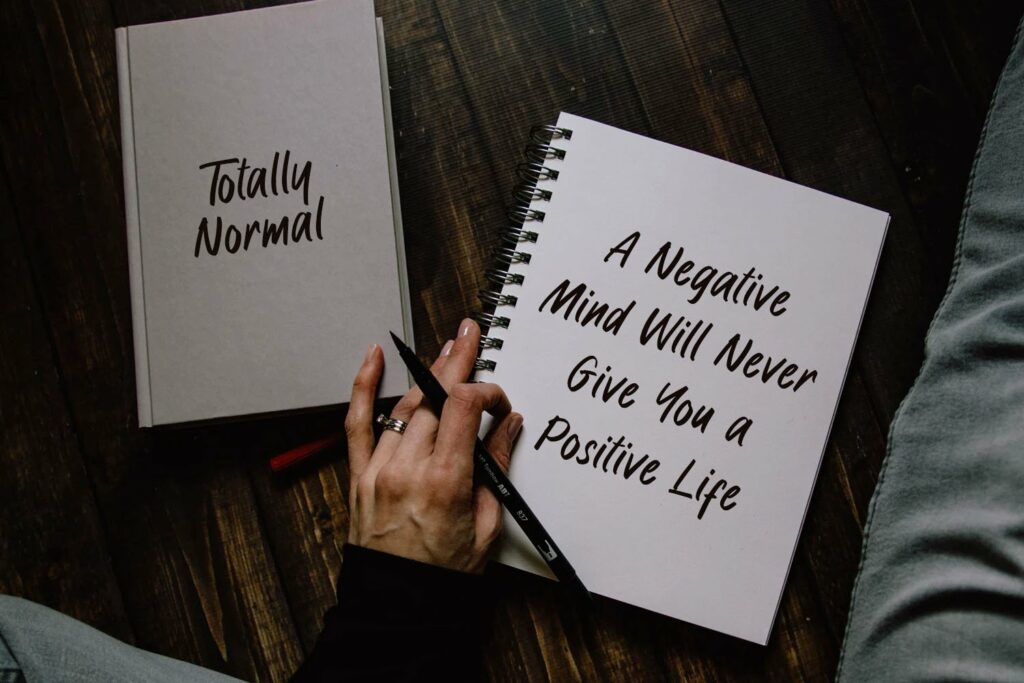 Totally
Normal
A Negative
Mind Will Never
Give You a
Positive Life
ABT
837